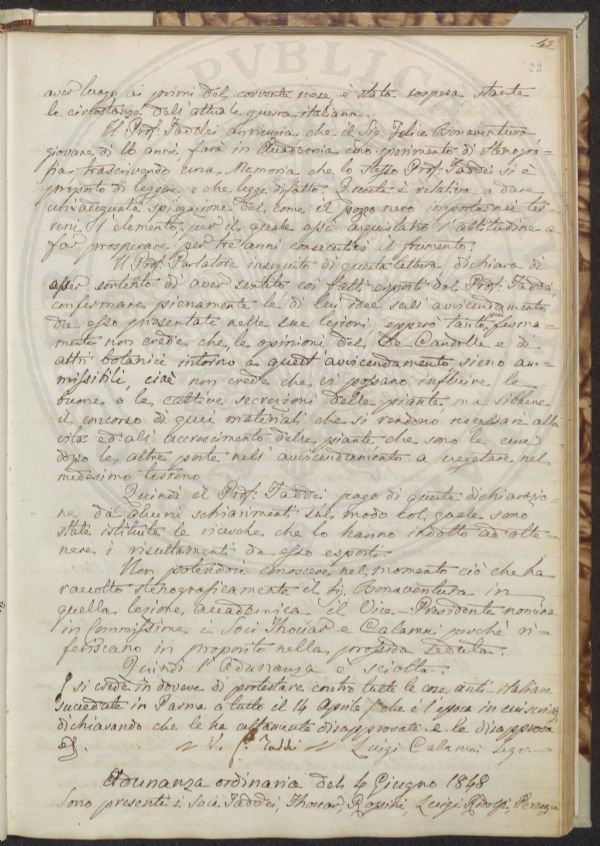 42
23
aver luogo ai primi del corrente mese, è stata sospesa stante
le circostanze dell'attuale guerra italiana.
Il Prof. Taddei annunzia che il Sig. Felice Bonaventura
giovane di 16 anni, farà in Accademia uno sperimento di stenogra-
fia, trascrivendo una Memoria che lo stesso Prof. Taddei si è
proposto di leggere e che legge difatto. Questa è relativa a dare
un'adeguata spiegazione del come il pozzo nero importa nei ter-
reni l'elemento, per il quale essi acquistano l'attitudine a
far prosperare per tre anni consecutivi il frumento.
Il Prof. Parlatore in seguito di questa lettura dichiara di
esser contento di aver sentito coi fatti esposti dal Prof. Taddei,
confermare pienamente le di lui idee sull'avvicendamento
da esso presentate nelle sue lezioni, epperò tanto più ferma-
mente non crede che le opinioni del De Candolle e di
altri botanici intorno a quest'avvicendamento sieno am-
missibili, cioè non crede che ci possano influire le
buone o le cattive secrezioni delle piante, ma sibbene
il concorso di quei materiali che si rendono necessari alla
vita ed all'accrescimento delle piante che sono le une
dopo le altre poste nell'avvicendamento a vegetare nel
medesimo terreno.
Quindi il Prof. Taddei pago di questa dichiarazio-
ne, dà alcuni schiarimenti sul modo col quale sono
state istituite le ricerche che lo hanno indotto ad otte-
nere i risultamenti da esso esposti.
Non potendosi conoscere nel momento ciò che ha
raccolto stenograficamente il Sig. Bonaventura in
quella lezione accademica, il Vice-Presidente nomina
in Commissione i Soci Thouar e Calamai perchè ri-
feriscano in proposito nella prossima seduta.
Quindi l'Adunanza è sciolta.
si crede in dovere di protestare contro tutte le cose anti-italiane
succedute in Parma a tutto il 14 Aprile
dichiarando che le ha altamente disapprovate e le disapprova
V. P. Taddei Luigi Calamai Segr.
Adunanza ordinaria del 4 Giugno 1848
Sono presenti i Soci Taddei, Thouar, Rossini, Luigi Ridolfi,